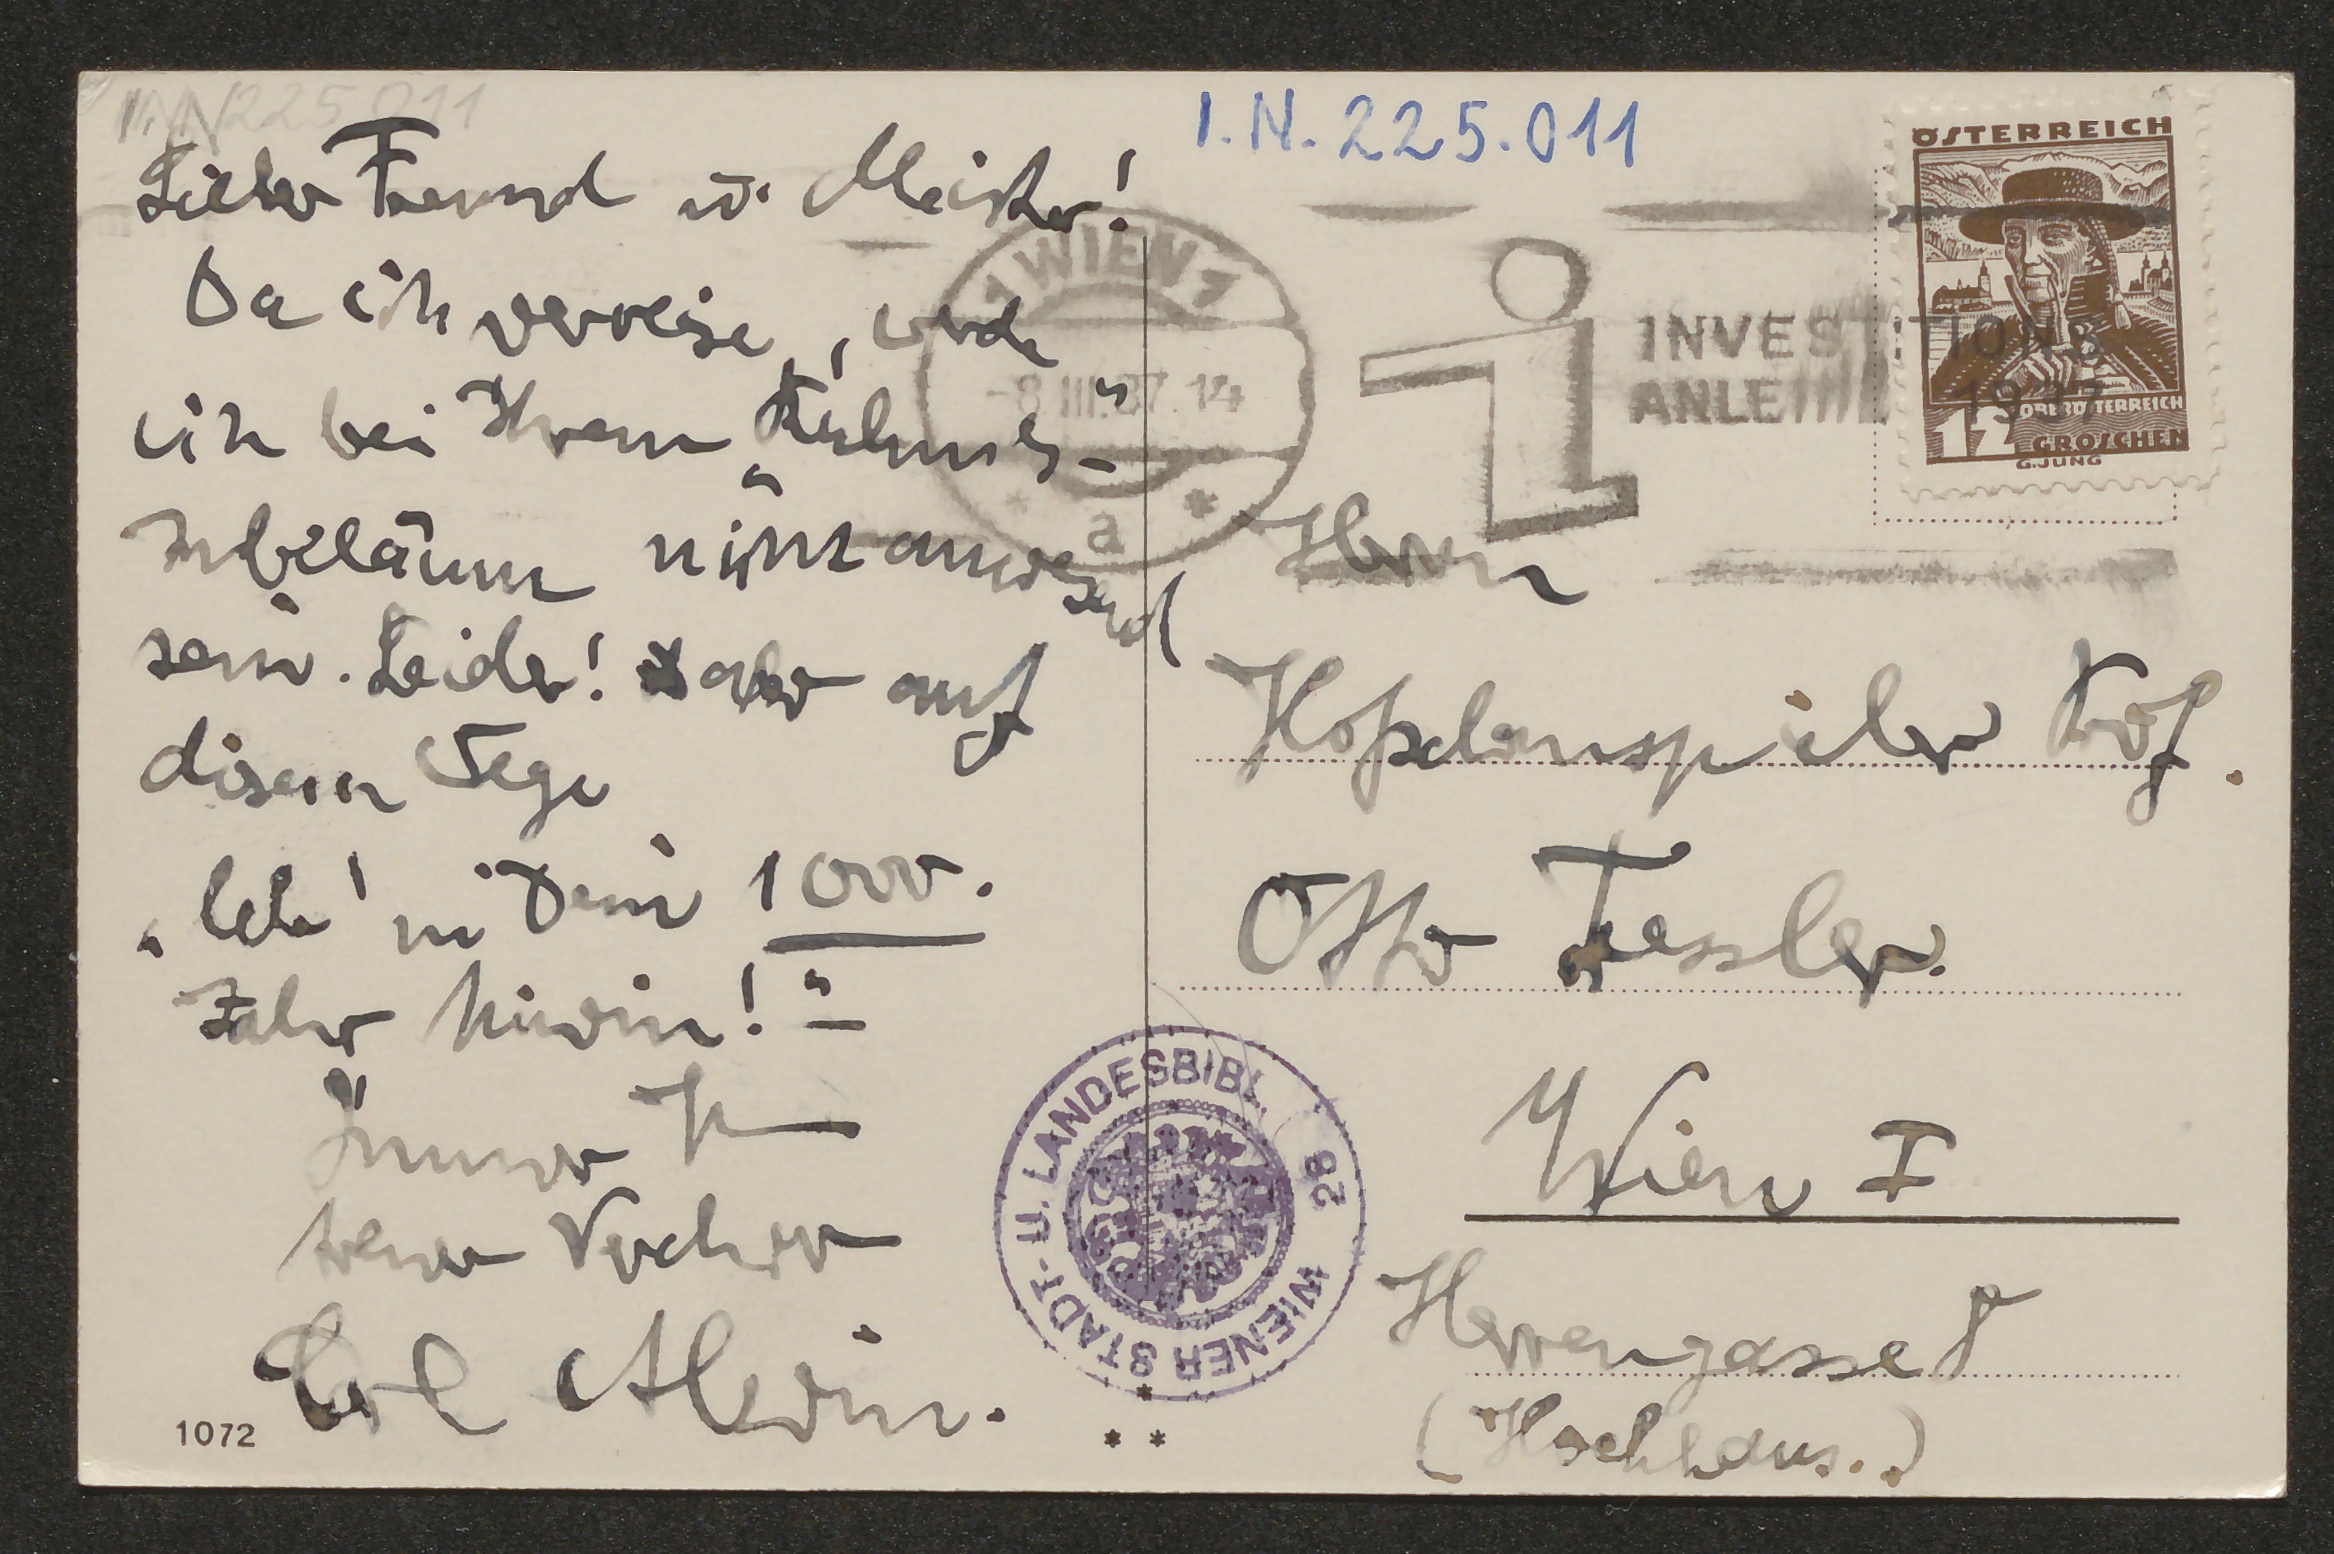 I.N. 225.011
Lieber Freund u. Meister!
Da ich verreise, werde
ich bei Ihrem „Ruhmes-"
Jubiläum nicht anwesend
sein. Leider! aber auf
diesem Wege
„Leb' in Dein 100.
Jahr hinein!"
Immer Ihr
treuer Verehrer
Karl Alwin.
1072
I.N. 225.011
1 WIEN 1
-8.III.37.14
* a *
i
INVESTITIONS
ANLEIHE 1937
ÖSTERREICH
OBERÖSTERREICH
12 GROSCHEN
G.JUNG
Herrn
Hofschauspieler Prof.
Otto Tressler.
Wien I
Herrengasse 8
(Hochhaus.)
WIENER STADT- U. LANDESBIBL. 28